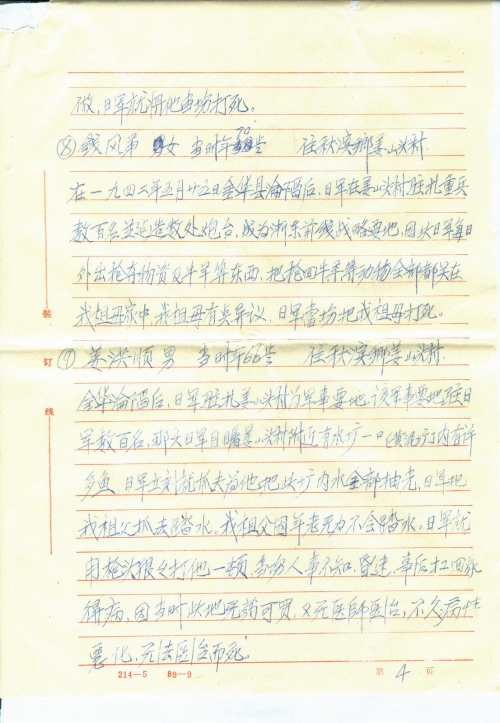 做，日军就将他当场打死。
⑧钱凤弟 女 当时年70岁 住秋滨乡姜山头村
在一九四二年五月廿五日金华县沦陷后，日军在姜山头村驻扎重兵
数百名并建造数处炮台，成为浙东前线战略要地，因此日军每日
外出抢夺物资及牛羊等东西，把抢回牛羊等动物全部都关在
我祖母家中，我祖母有些异议，日军当场把我祖母打死。
⑨姜洪顺 男 当时年66岁 住秋滨乡姜山头村
金华沦陷后，日军驻扎姜山头村为军事要地，该军事要地驻日
军数百名，那天日军目瞩姜山头村附近有水圹一口（黄泥圹）内有许
多鱼，日军立刻就抓去为他把此圹内水全部抽老，日军把
我祖父抓去踏水。我祖父因年老无力不会踏水。日军就
用枪头狠々打他一顿，当场人事不知，昏迷，事后扛回家
得病，因当时此地无药可买，又无医师医治，不久病情
恶化，无法医治而死。
装
订
线
214—5 89—9
第 4 页